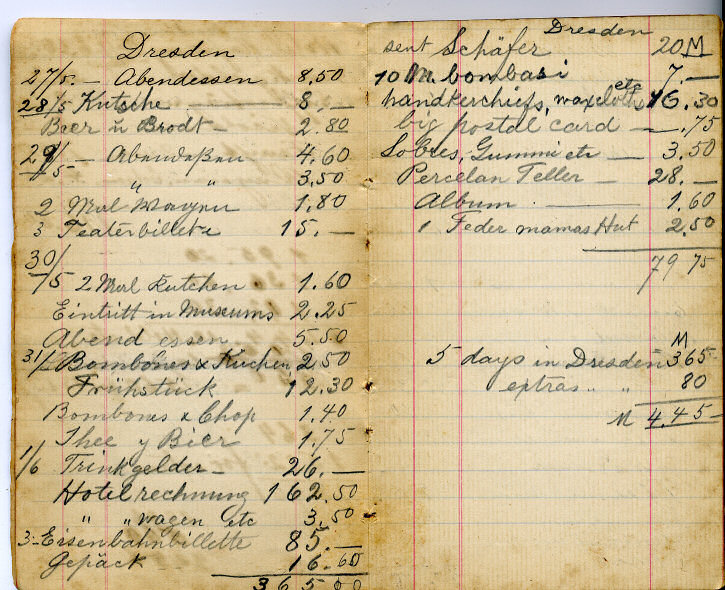 Dresden
27/5. — Abendessen 8,50
28/5 Kutsche — 8,—
Bier u Brodt — 2.80
29/5 — Abendeßen 4.60
" " 3,50
2 Mal Wagen 1.80
3 Teaterbillete 15.—
30/5 2 Mal Kutchen 1.60
Eintritt in Museums 2.25
Abend essen 5.50
31/5 Bombones & Kuchen, 2,50
Frühstück 12.30
Bombones & Chop 1.40
Thee y Bier 1.75
1/6 Trinkgelder — 26.—
Hotelrechnung 162.50
" " wagen etc 3.50
3 — Eisenbahnbillette 85.—
Gepäck 16.60
365 00
Dresden
sent Schäfer 20M
10 M. bombasi 7.—
handkerchiefs, etc 16.30
big postal card — .75
Gummi etc — 3.50
Percelan Teller — 28.—
Album — 1.60
1 Feder mamas Hut 2,50
79 75
M
5 days in Dresden — 365
extras " " 80
M 4.45